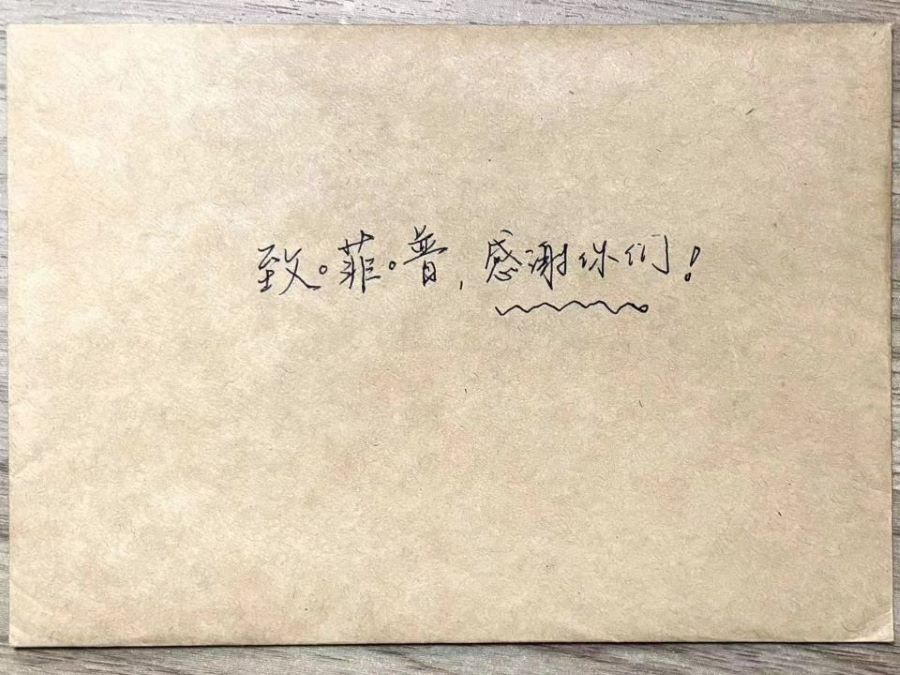 致。菲。普，感谢你们！